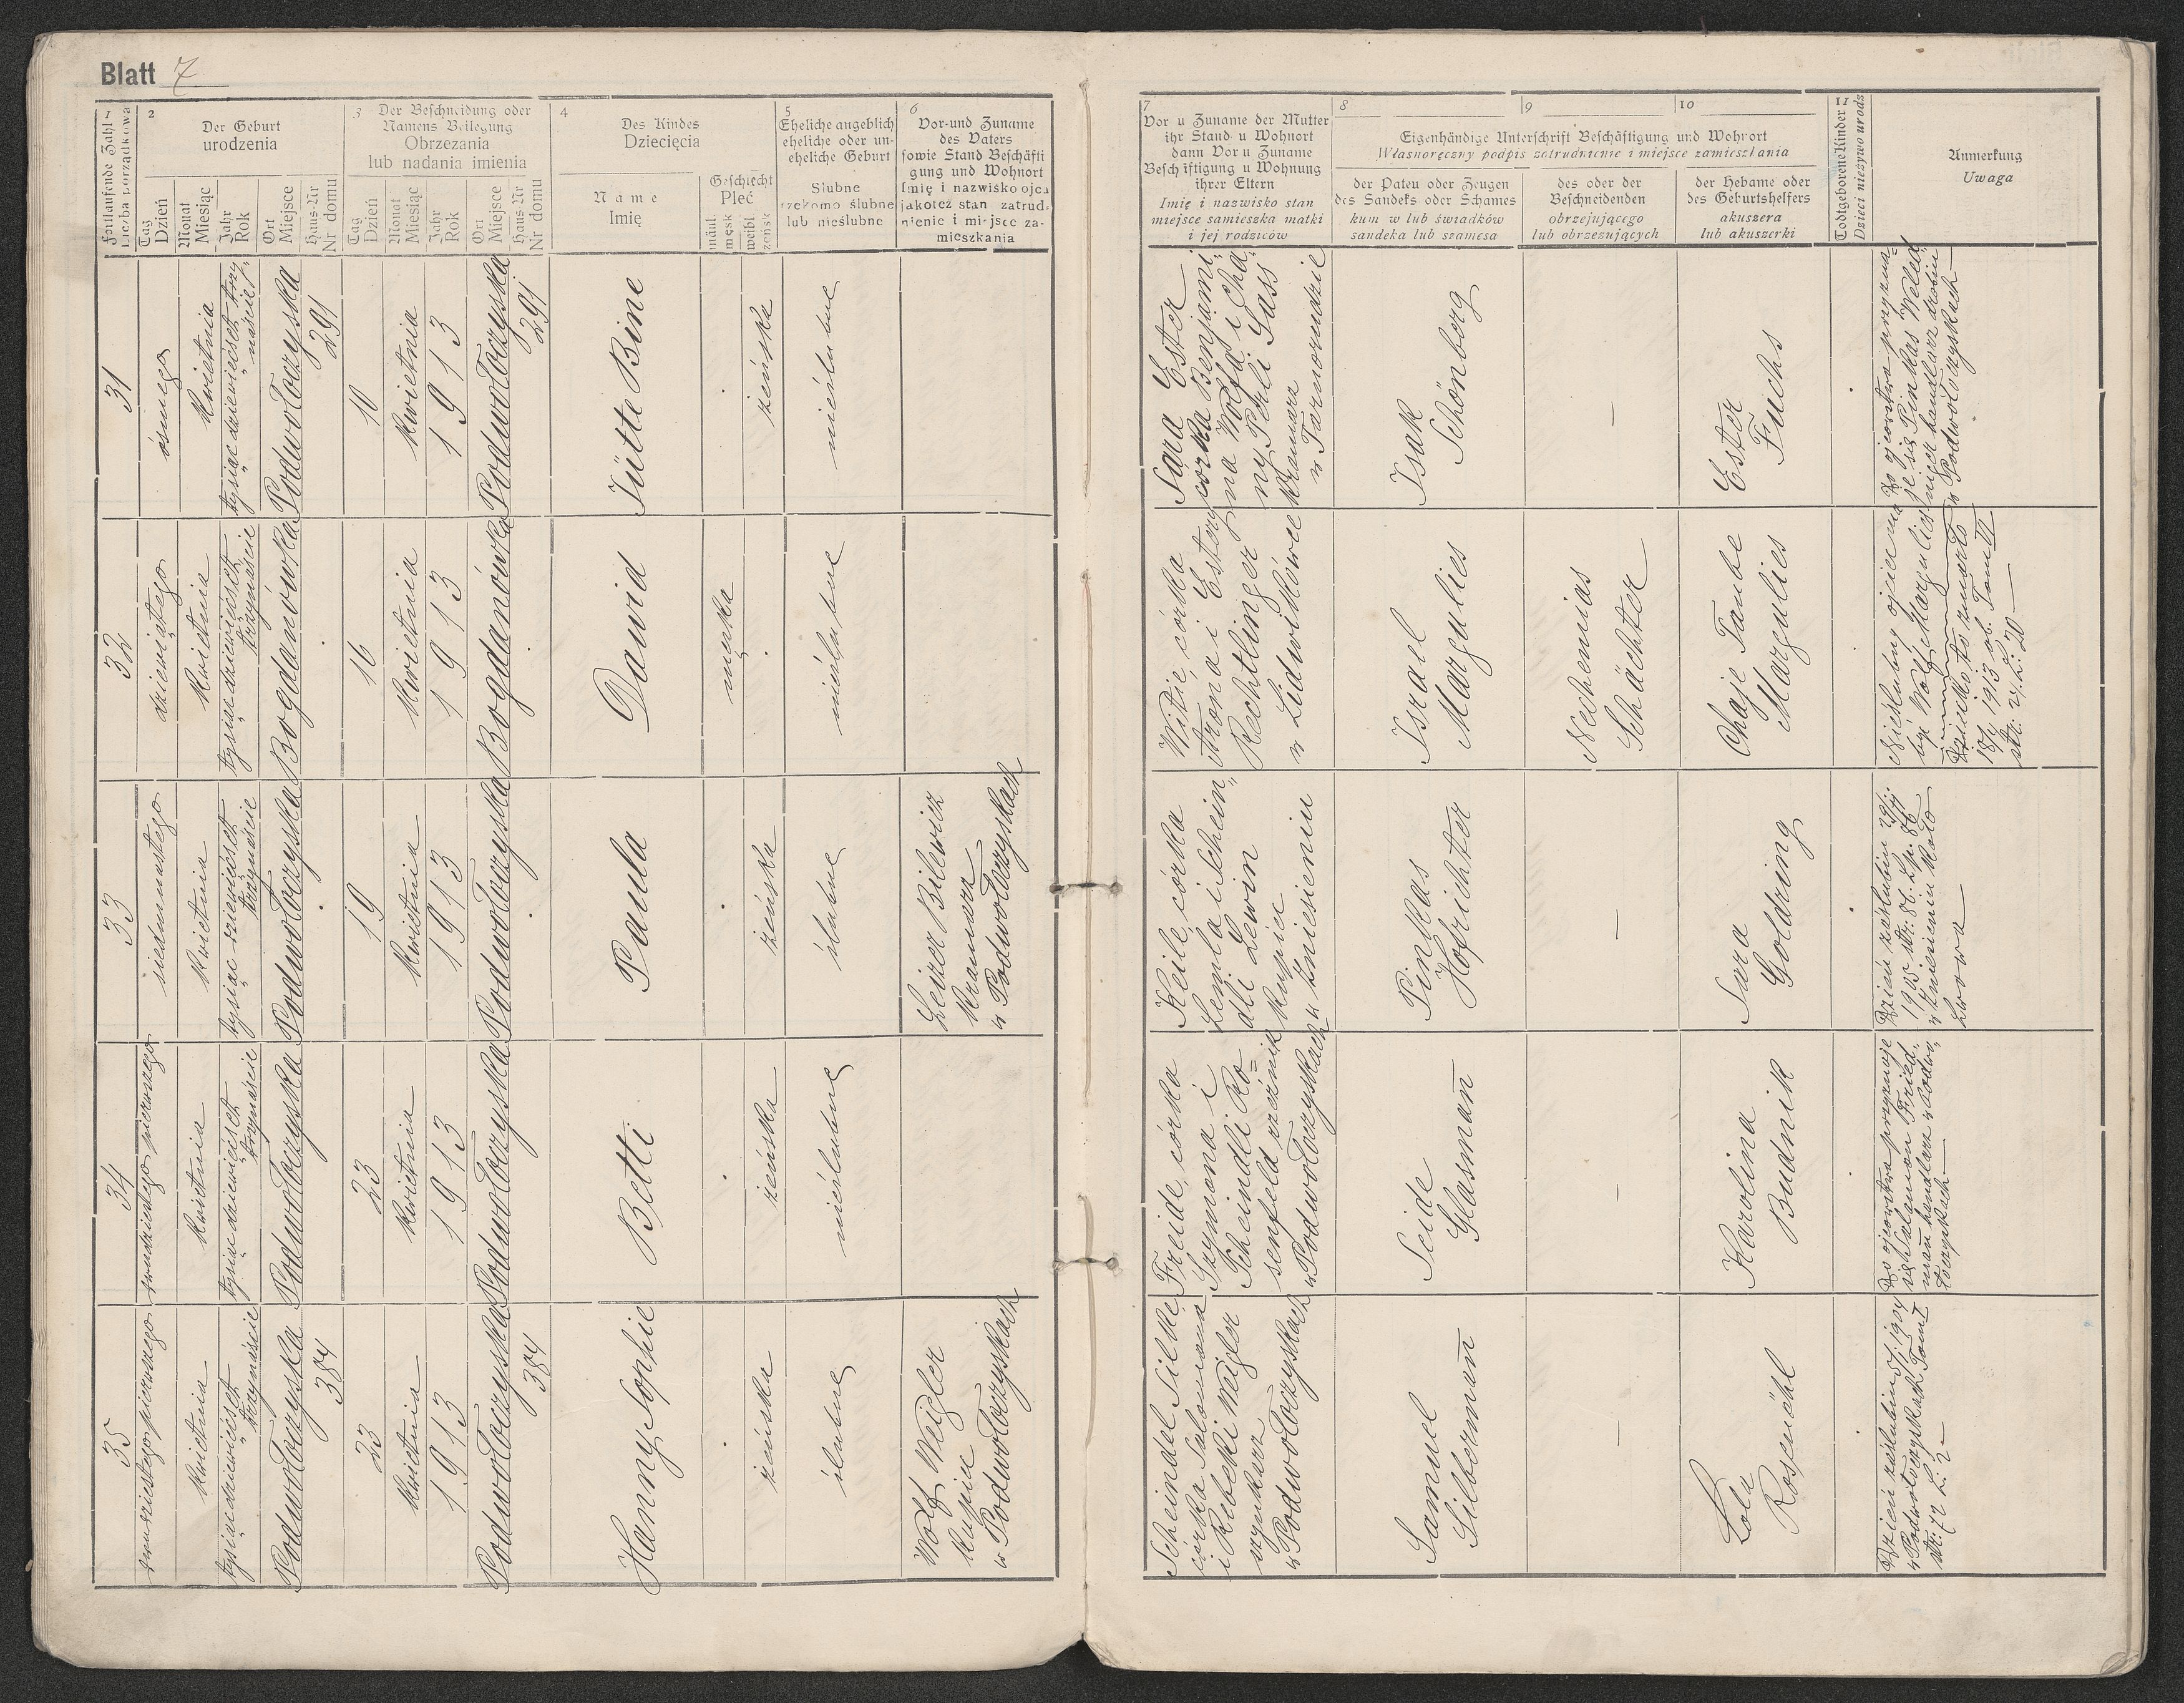 Blatt 7
1
Fortlaufende Zahl
Liczba porządkowa
2
Der Geburt
urodzenia
Tag
Dzień
Monat
Miesiąc
Jahr
Rok
Ort
Miejsce
Haus-Nr
Nr domu
3
Der Beschneidung oder
Namens Beilegung
Obrzezania
lub nadania imienia
Tag
Dzień
Monat
Miesiąc
Jahr
Rok
Ort
Miejsce
Haus Nr
Nr domu
4
Des Kindes
Dziecięcia
Name
Imię
Geschlecht
Płeć
männl.
męsk
weibl
żeńsk
5
Eheliche angeblich
eheliche oder un-
eheliche Geburt
Ślubne
rzekomo ślubne
lub nieślubne
6
Vor-und Zuname
des Vaters
sowie Stand Beschäfti
gung und Wohnort
Imię i nazwisko ojca
jakoteż stan zatrud-
nienie i miejsce za-
mieszkania
7
Vor u Zuname der Mutter
ihr Stand u Wohnort
dann Vor u Zuname
Beschäftigung u Wohnung
ihrer Eltern
Imię i nazwisko stan
miejsce samieszka matki
i jej rodziców
8
9
10
Eigenhändige Unterschrift Beschäftigung und Wohnort
Własnoręczny podpis zatrudnienie i miejsce zamieszkania
der Paten oder Zeugen
des Sandeks oder Schames
kum w lub świadków
sandeka lub szamesa
des oder der
Beschneidenden
obrzejującego
lub obrzezujących
der Hebame oder
des Geburtshelfers
akuszera
lub akuszerki
11
Todtgeborene Kinder
Dzieci nieżywo urodz
Anmerkung
Uwaga
31
ósmego
kwietnia
tysiąc dziewięćset trzy-
naście
Podwołoczyska
291
10
kwietnia
1913
Podwołoczyska
291
Jütte Bine
żeńska
nieślubne
Sara Ester
córka Benjami-
na Wolfa i Cha-
ny Perli Gass
kramarz
w Tarnorudzie
Isak
Schönberg
—
Ester
Fuchs
Do ojcostwa przyzna-
je się Pinkas Weled-
niger handlarz drobiu
w Podwołoczyskach —
32
dziewiątego
kwietnia
tysiąc dziewięćset
trzynaście
Bogdanówka
16
kwietnia
1913
Bogdanówka
Dawid
męska
nieślubne
Witie, córka
Arona i Estery
Rechtlinger
w Lidwikówce
Israel
Margulies
Nechemias
Schächter
Chaje Taube
Margulies
Nieślubny ojciec ma
być Wolf Margulies
Dziecko to zmarło
18/4 1913 ob. Tom II
str. 24. L: 20 —
33
siedmnastego
kwietnia
tysiąc dziewięćset
trzynaście
Podwołoczyska
19
kwietnia
1913
Podwołoczyska
Paula
żeńska
ślubne
Leizer Bilewicz
kramarz
w Podwołoczyskach
Keile, córka
Lemla i Schein-
dli Lewin
kupiec
w Zniesieniu
Pinkas
Hofrichter
—
Sara
Goldring
w Zniesieniu koło
Lwowa —
34
dwudziestego pierwszego
kwietnia
tysiąc dziewięćset
trzynaście
Podwołoczyska
23
kwietnia
1913
Podwołoczyska
Betti
żeńska
nieślubne
Freide, córka
Szymona i
Scheindli Ro=
senfeld rzeźnik
w Podwołoczyskach
Seide
Glasman̄
—
Karolina
Budnik
Do ojcostwa przyznaje
się Salamon Fried-
man̄ handlarz w Podwo-
łoczyskach —
35
dwudziestego pierwszego
kwietnia
tysiąc dziewięćset
trzynaście
Podwołoczyska
384
23
kwietnia
1913
Podwołoczyska
384
Hanny Sophie
żeńska
ślubne
Wolf Weigler
kupiec
w Podwołoczyskach
Scheindel Silke
córka Salomona
i Rebeki Weigler
szynkarz
w Podwołoczyskach
Samuel
Silberman̄
—
Lola
Rosenöhl
w Podwołoczyskach Tom I
str. 72 L: 2 —